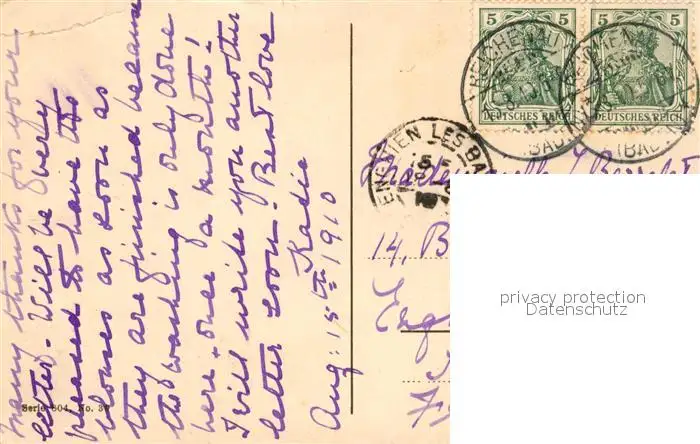 Many thanks for your
letter. Will be very
pleased to have the
blouses as soon as
they are finished because
the washing is only done
here, once a month!
I will write you another
letter soon. Best love
Katie
Aug: 15th 1910
Serie 604. No. 37
5 5
DEUTSCHES REICH
5 5
DEUTSCHES REICH
REICHENAU
(BAD
REICHENAU
(BAD
ENGHIEN LES BA
14, B
Eng
privacy protection
Datenschutz